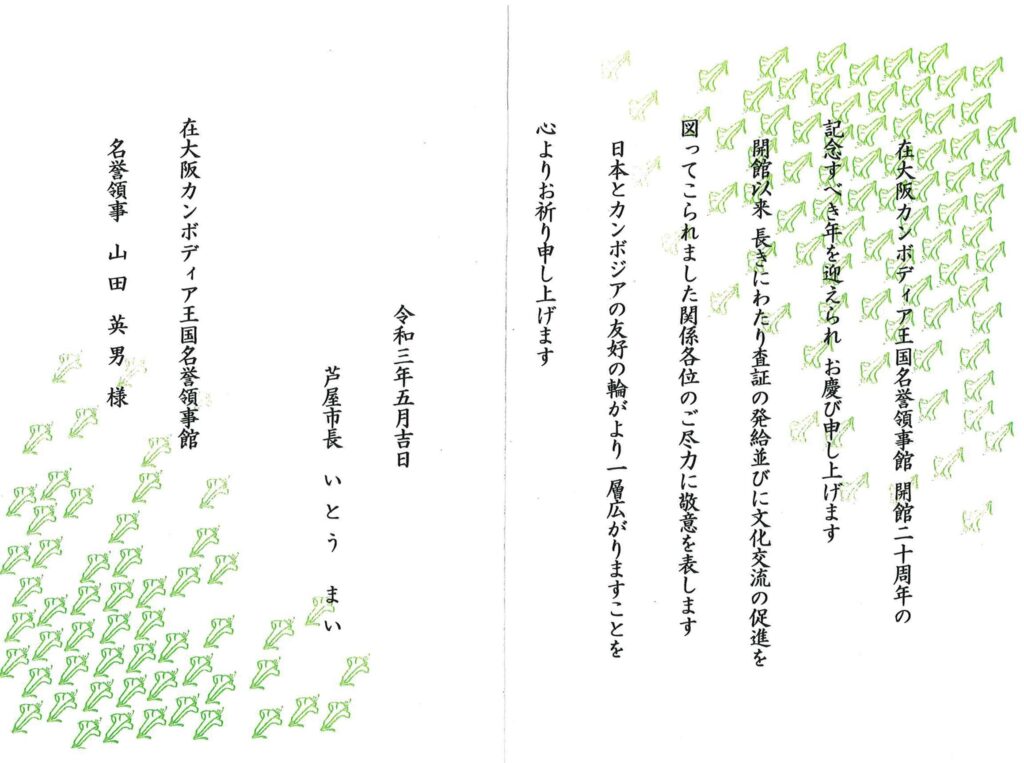 在大阪カンボディア王国名誉領事館 開館二十周年の
記念すべき年を迎えられ お慶び申し上げます
開館以来 長きにわたり査証の発給並びに文化交流の促進を
図ってこられました関係各位のご尽力に敬意を表します
日本とカンボジアの友好の輪がより一層広がりますことを
心よりお祈り申し上げます
令和三年五月吉日
芦屋市長 いとう まい
在大阪カンボディア王国名誉領事館
名誉領事 山田 英男 様